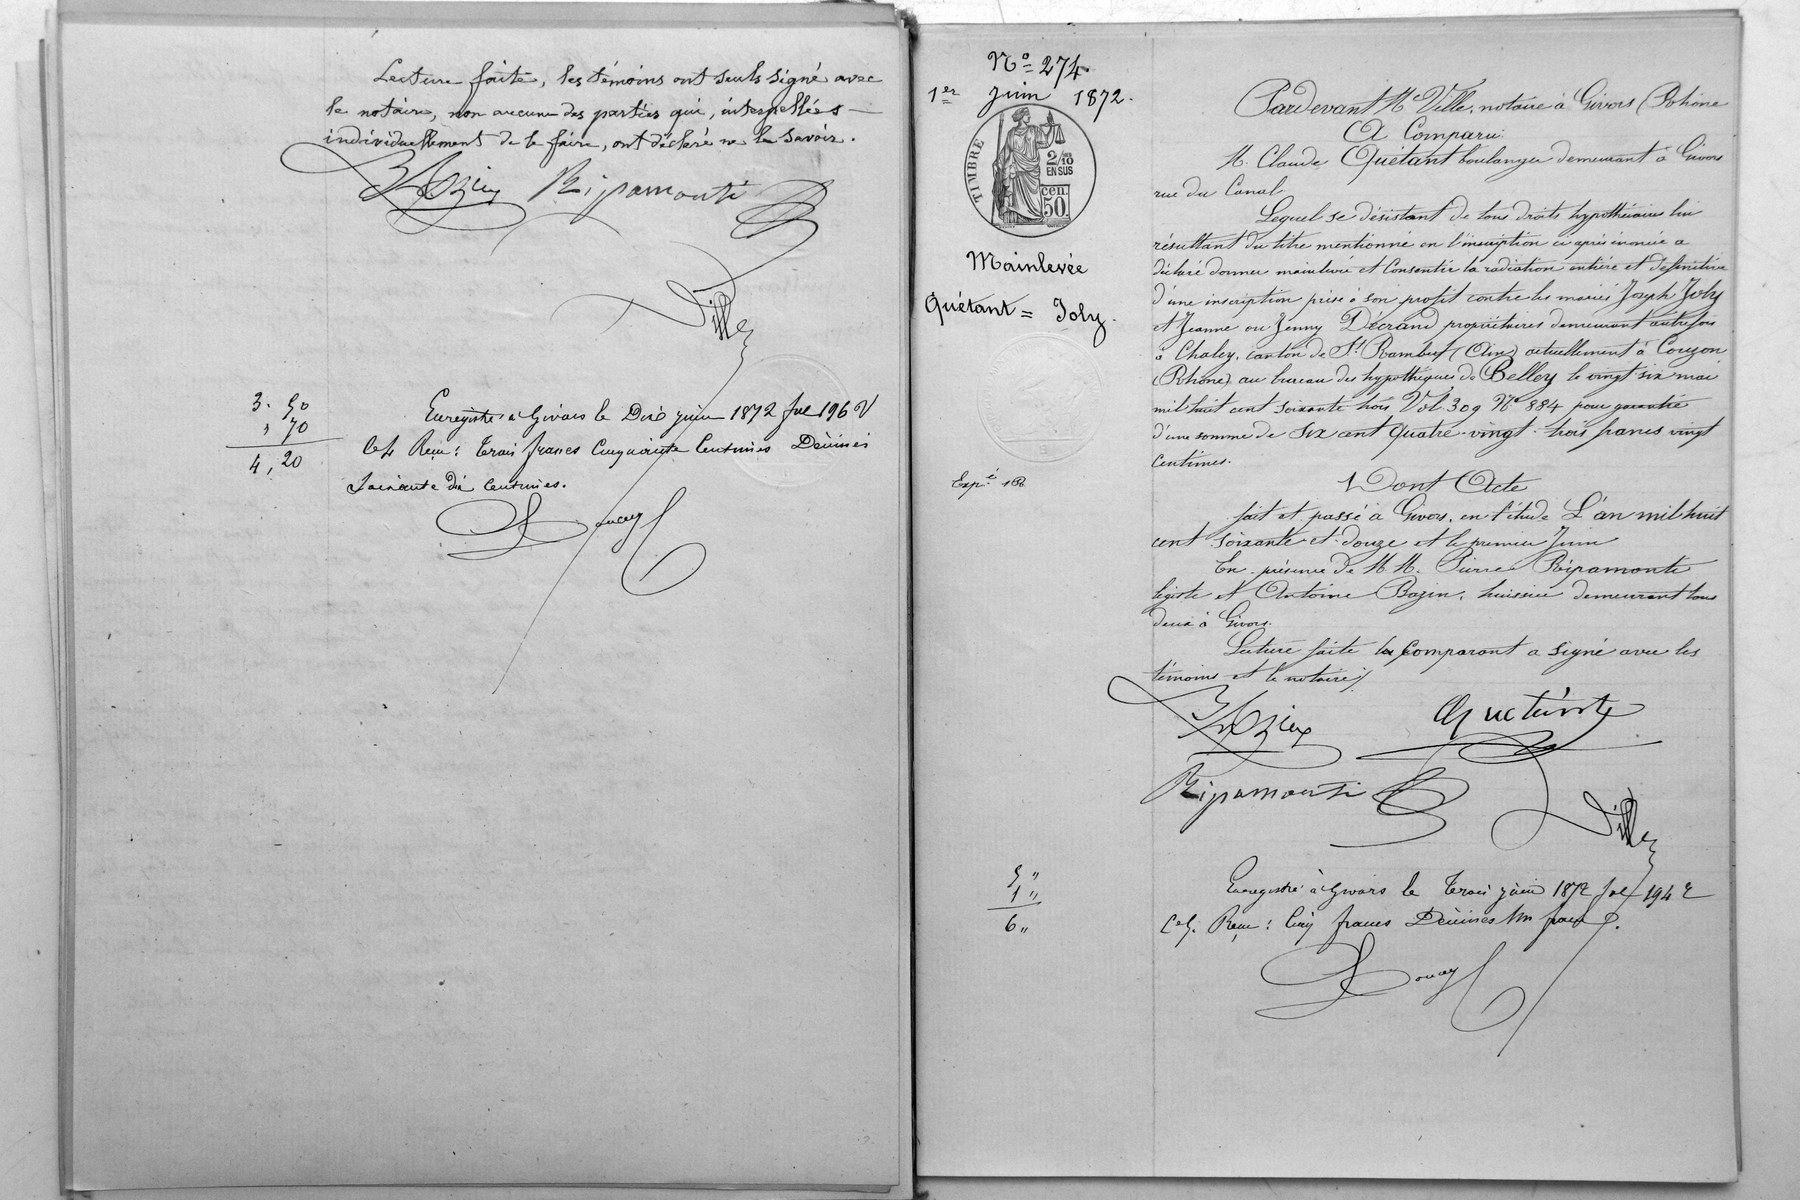 Lecture faite, les témoins ont seuls signé avec
le notaire, non aucune des parties qui, interpellées
individuellement de le faire, ont déclaré ne le savoir.
Bazin Ripamonti
Ville
3. 50
" 70
4, 20
Enregistré à Givors le Dix juin 1872 fol 196 V
C 4 Reçu : Trois francs Cinquante Centimes Décimes
Soixante dix Centimes.
Nº 274.
1er Juin 1872.
TIMBRE
2/10
EN SUS
50 cen.
Mainlevée
Quétant = Joly.
Expé. 1R
Pardevant Me Ville, notaire à Givors (Rhône
A Comparu
M. Claude Quétant boulanger demeurant à Givors
rue du Canal
Lequel se désistant de tous droits hypothécaires lui
résultant du titre mentionné en l'inscription ci après énoncée a
déclaré donner mainlevée et Consentir la radiation entière et définitive
d'une inscription prise à son profit contre les mariés Joseph Joly
et Jeanne ou Jenny Décrand propriétaires demeurant autrefois
à Chaley, canton de St Rambert (Ain) actuellement à Couzon
(Rhône) au bureau des hypothèques de Belley le vingt six mai
mil huit cent soixante trois, Vol 309 Nº 884 pour garantie
d'une somme de six cent quatre-vingt-trois francs vingt
centimes.
Dont Acte
fait et passé à Givors, en l'étude L'an mil huit
cent soixante et douze et le premier Juin
En présence de M M. Pierre Ripamonti
légiste et Antoine Bazin, huissier demeurant tous
deux à Givors.
Lecture faite le comparant a signé avec les
témoins et le notaire/.
Bazin Quétant
Ripamonti Ville
5 "
1 "
6 "
Enregistré à Givors le Trois juin 1872 fol 194 R
C 5. Reçu : Cinq francs Décimes Un franc.